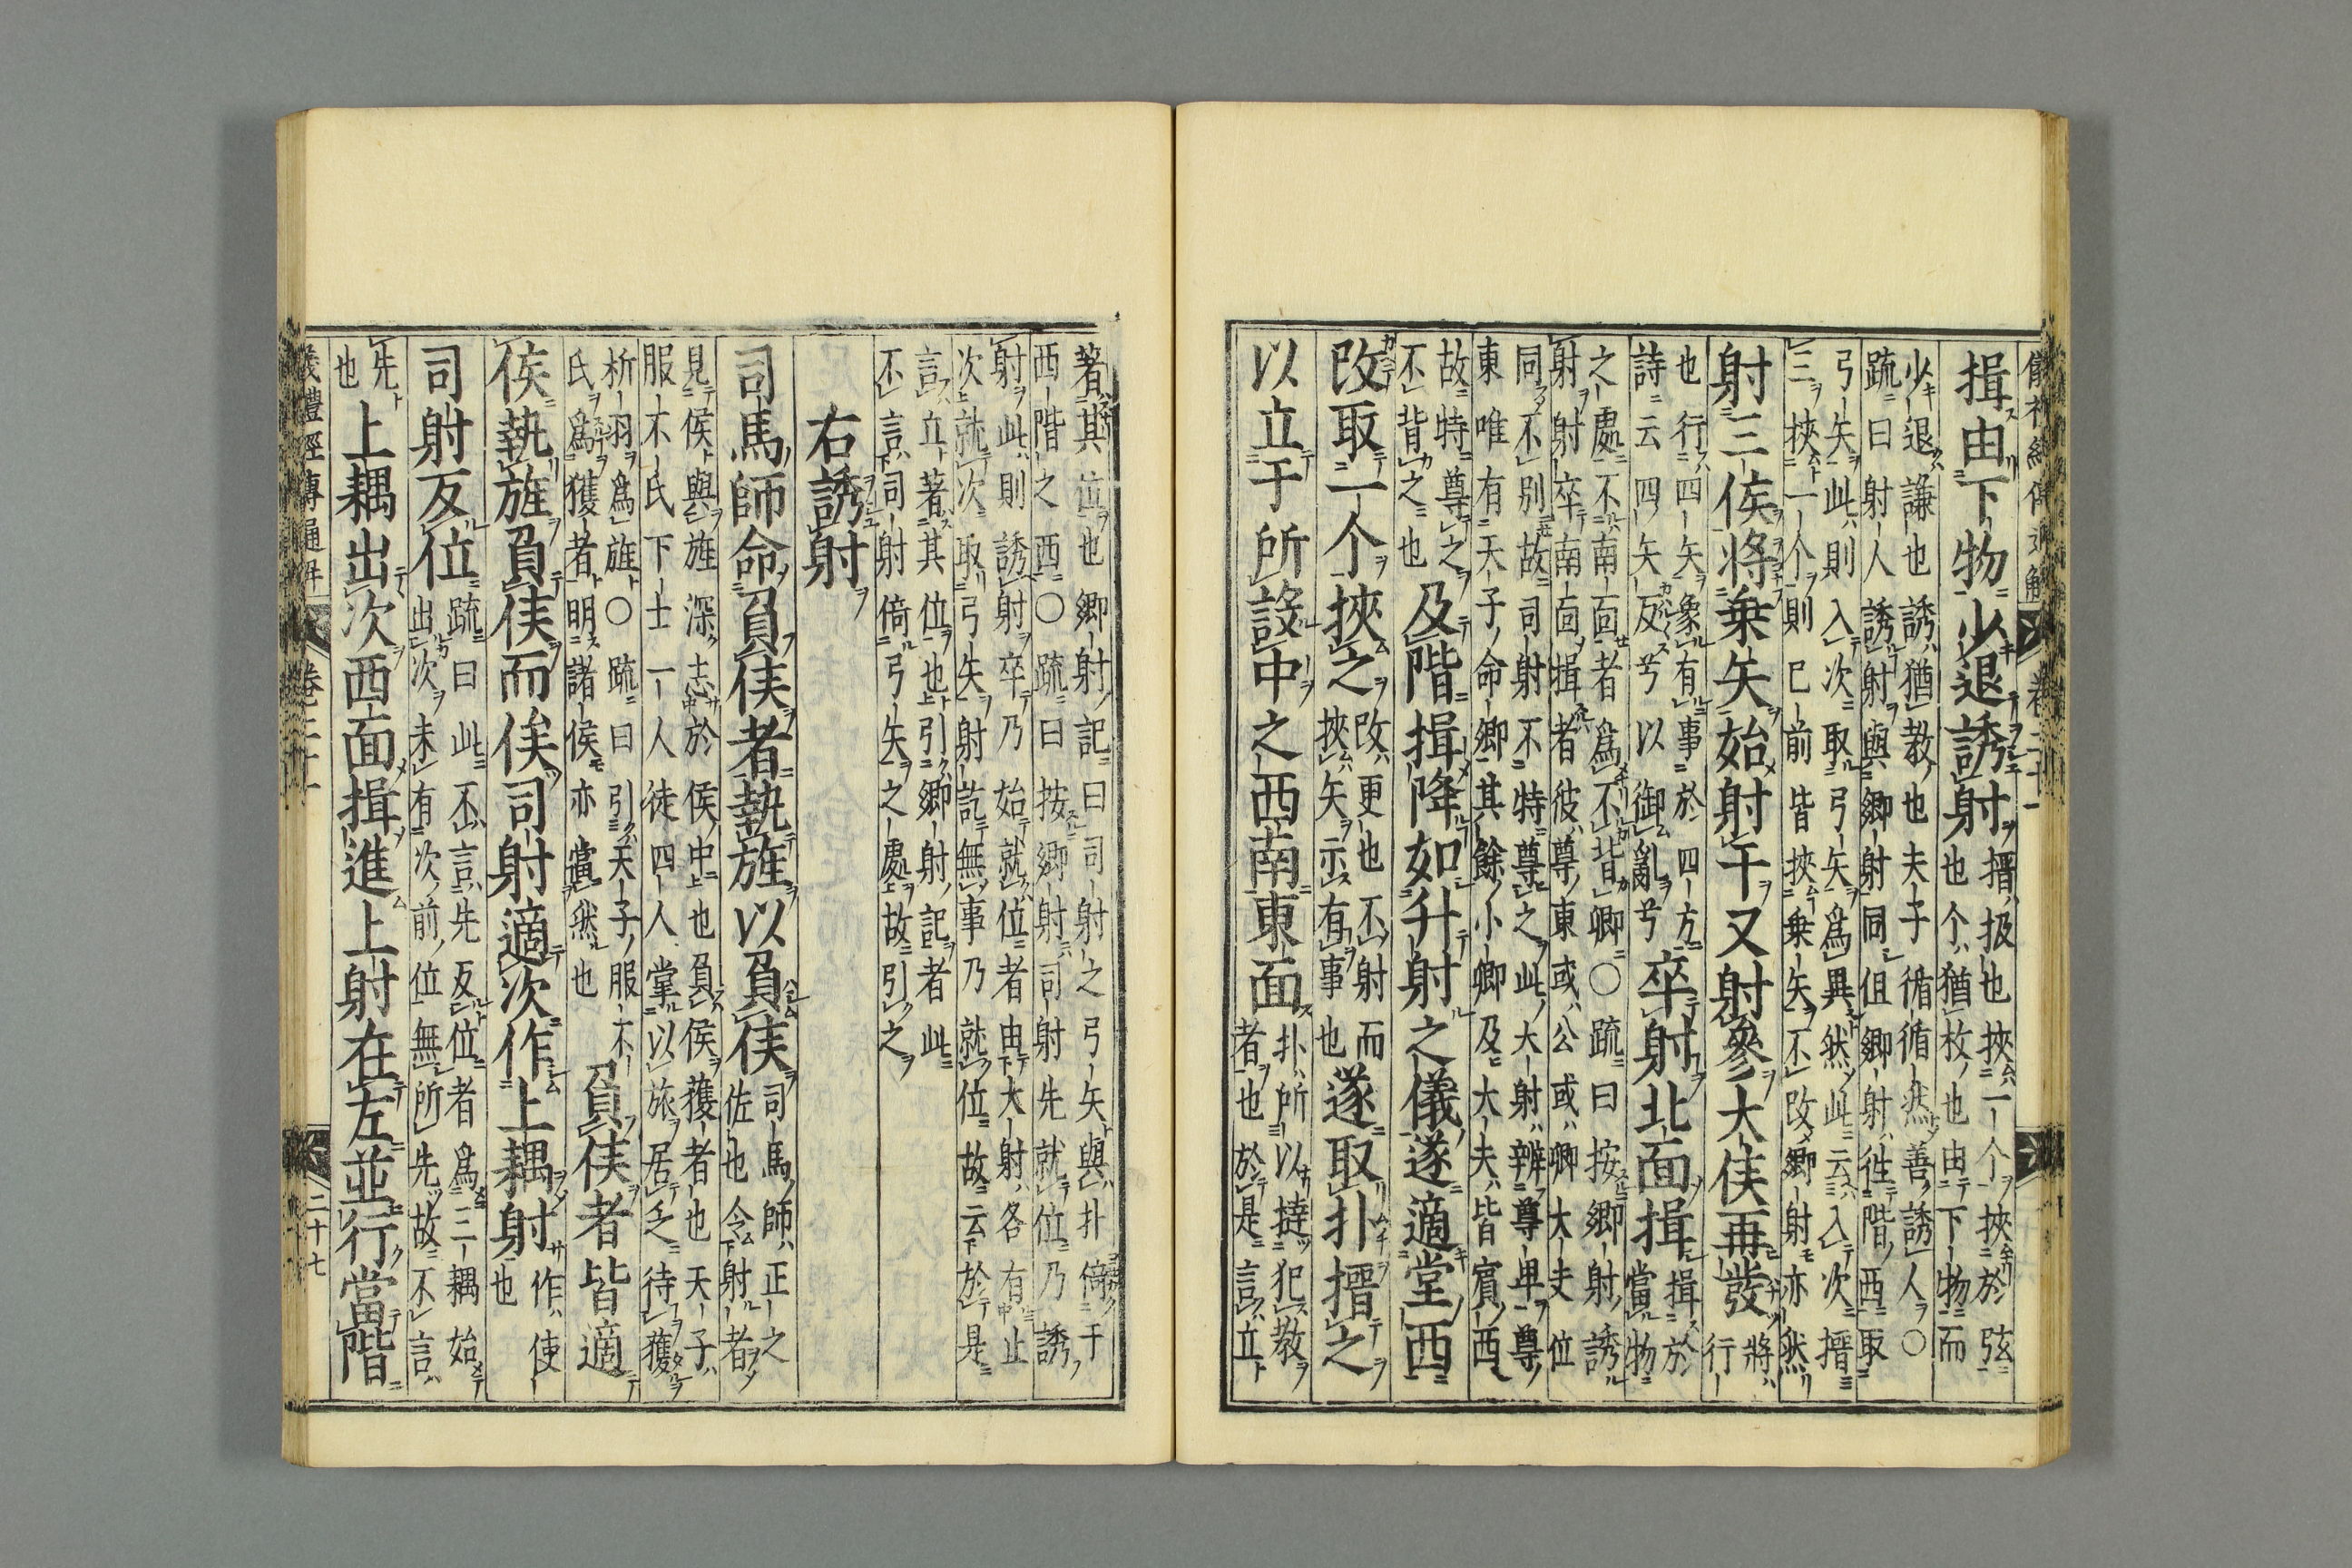 儀禮經傳通解 卷二十一
揖由下物少退誘射
搢扱也挾一个挾於弦
也个猶枚也由下物而
少退謙也誘猶教也夫子循循然善誘人〇
疏曰射人誘射與卿射同但卿射往階西取
弓矢此則入次取弓矢爲異然此云入次搢
三挾一个則巳前皆挾乗矢不改卿射亦然
射三侯將乗矢始射干又射參大侯再發
將
行
也行四矢象有事於四方
詩云四矢反兮以御亂兮
卒射北面揖
揖於
當物
之處不南面者爲不背卿〇疏曰按卿射誘
射射卒南面揖者彼尊東或公或卿大夫位
同不別故司射不特尊之此大射辨尊卑尊
東唯有天子命卿其餘小卿及大夫皆賓西
故特尊之
不背之也
及階揖降如升射之儀遂適堂西
改取一个挾之
改更也不射而
挾矢示有事也
遂取扑搢之
以立于所設中之西南東面
扑所以撻犯教
者也於是言立
著其位也卿射記曰司射之弓矢與扑倚于
西階之西〇疏曰按卿射司射先就位乃誘
射此則誘射卒乃始就位者由大射各有止
次就次取弓矢射訖無事乃就位故云於是
言立著其位也引卿射記者此
不言司射倚弓矢之處故引之
右誘射
司馬師命負侯者執旌以負侯
司馬師正之
佐也令射者
見侯與旌深志於侯中也負侯獲者也天子
服不氏下士一人徒四人掌以旅居乏待獲
析羽爲旌〇疏曰引天子服不
氏爲獲者明諸侯亦當然也
負侯者皆適
侯執旌負侯而俟司射適次作上耦射
作使
也
司射反位
疏曰此不言先反位者爲三耦始
出次未有次前位無所先故不言
先
也
上耦出次西面揖進上射在左並行當階
儀禮經傳通解 卷二十一 二十七